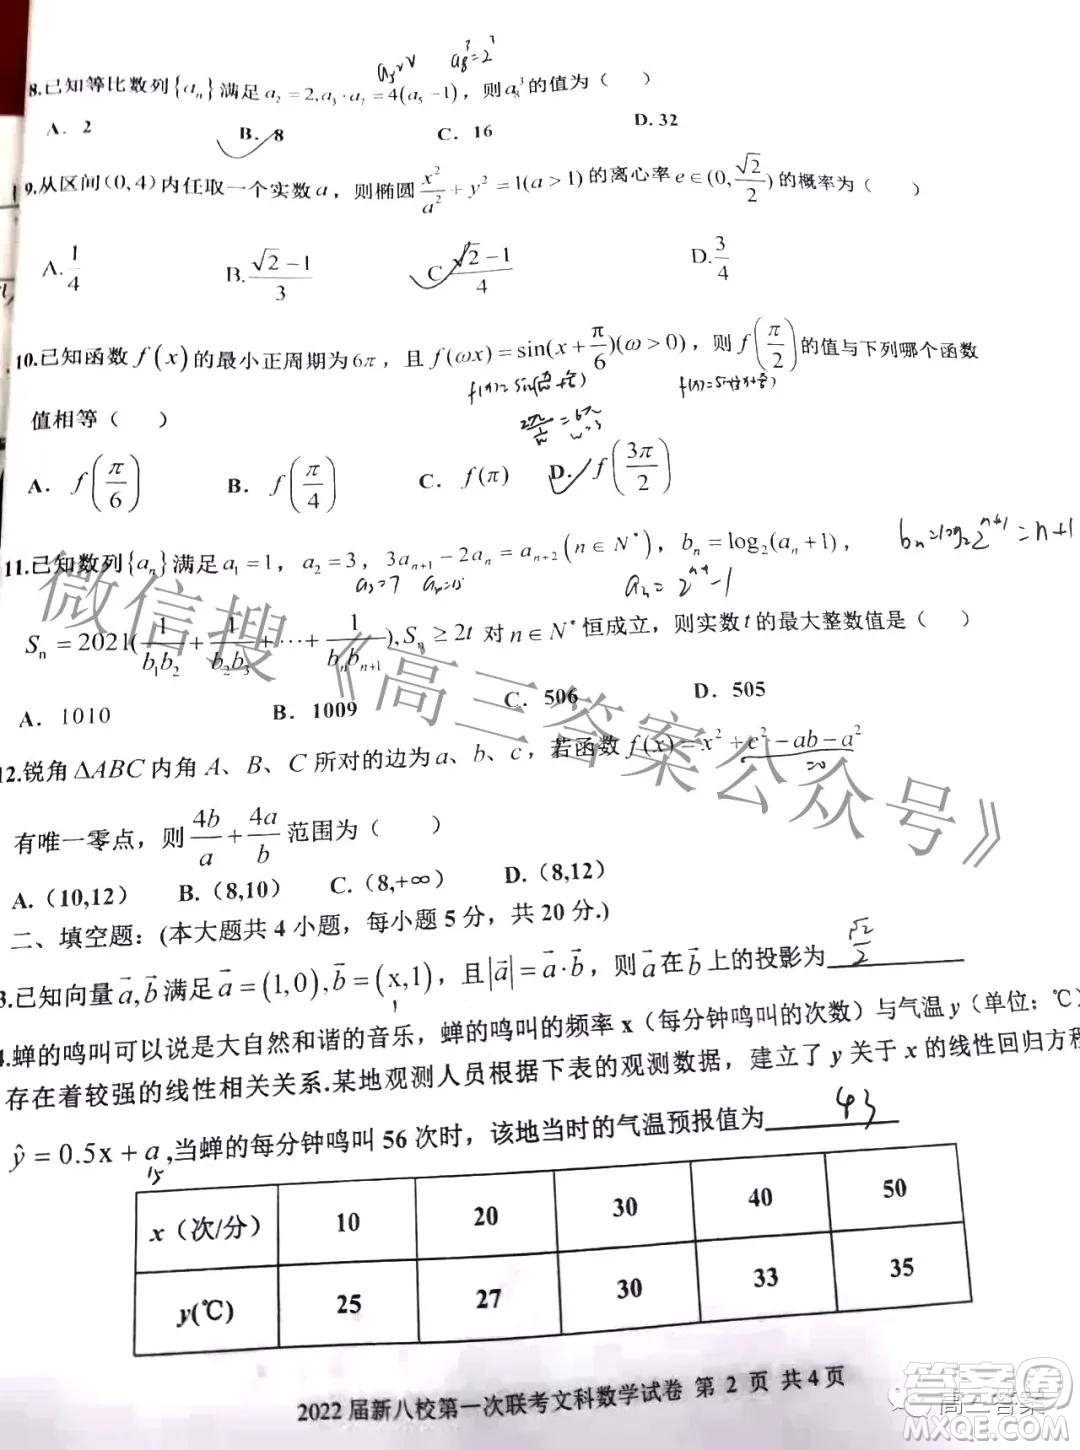 a₅=√ a₈³=2³
8.已知等比数列{aₙ}满足a₂=2,a₃·a₇=4(a₅-1)，则a₈³的值为（ ）
A. 2 B. 8 C. 16 D. 32
9.从区间(0,4)内任取一个实数a，则椭圆x²/a²+y²=1(a>1)的离心率e∈(0,√2/2)的概率为（ ）
A.1/4 B.(√2-1)/3 C.(√2-1)/4 D.3/4
10.已知函数f(x)的最小正周期为6π，且f(ωx)=sin(x+π/6)(ω>0)，则f(π/2)的值与下列哪个函数
值相等（ ）
A. f(π/6) B. f(π/4) C. f(π) D. f(3π/2)
bₙ=log₂2ⁿ⁺¹=n+1
11.已知数列{aₙ}满足a₁=1，a₂=3，3aₙ₊₁-2aₙ=aₙ₊₂(n∈N*)，bₙ=log₂(aₙ+1)，
a₃=7 a₄=15 aₙ=2ⁿ⁺¹-1
Sₙ=2021(1/(b₁b₂)+1/(b₂b₃)+···+1/(bₙbₙ₊₁)),Sₙ≥2t对n∈N*恒成立，则实数t的最大整数值是（ ）
A. 1010 B. 1009 C. 506 D. 505
12.锐角△ABC内角A、B、C所对的边为a、b、c，若函数f(x)=x²+c²-ab-a²
=0
有唯一零点，则4b/a+4a/b范围为（ ）
A.（10,12） B.（8,10） C.（8,+∞） D.（8,12）
二、填空题：(本大题共4小题，每小题5分，共20分.)
3.已知向量a⃗,b⃗满足a⃗=(1,0),b⃗=(x,1)，且|a⃗|=a⃗·b⃗，则a⃗在b⃗上的投影为 √2/2
1
4.蝉的鸣叫可以说是大自然和谐的音乐，蝉的鸣叫的频率x（每分钟鸣叫的次数）与气温y（单位：℃）
存在着较强的线性相关关系.某地观测人员根据下表的观测数据，建立了y关于x的线性回归方程
ŷ=0.5x+a,当蝉的每分钟鸣叫56次时，该地当时的气温预报值为 43
15
x（次/分） 10 20 30 40 50
y(℃) 25 27 30 33 35
2022届新八校第一次联考文科数学试卷 第 2 页 共4页
微信搜《高三答案公众号》
答案圈
MXQE.COM
高三答案